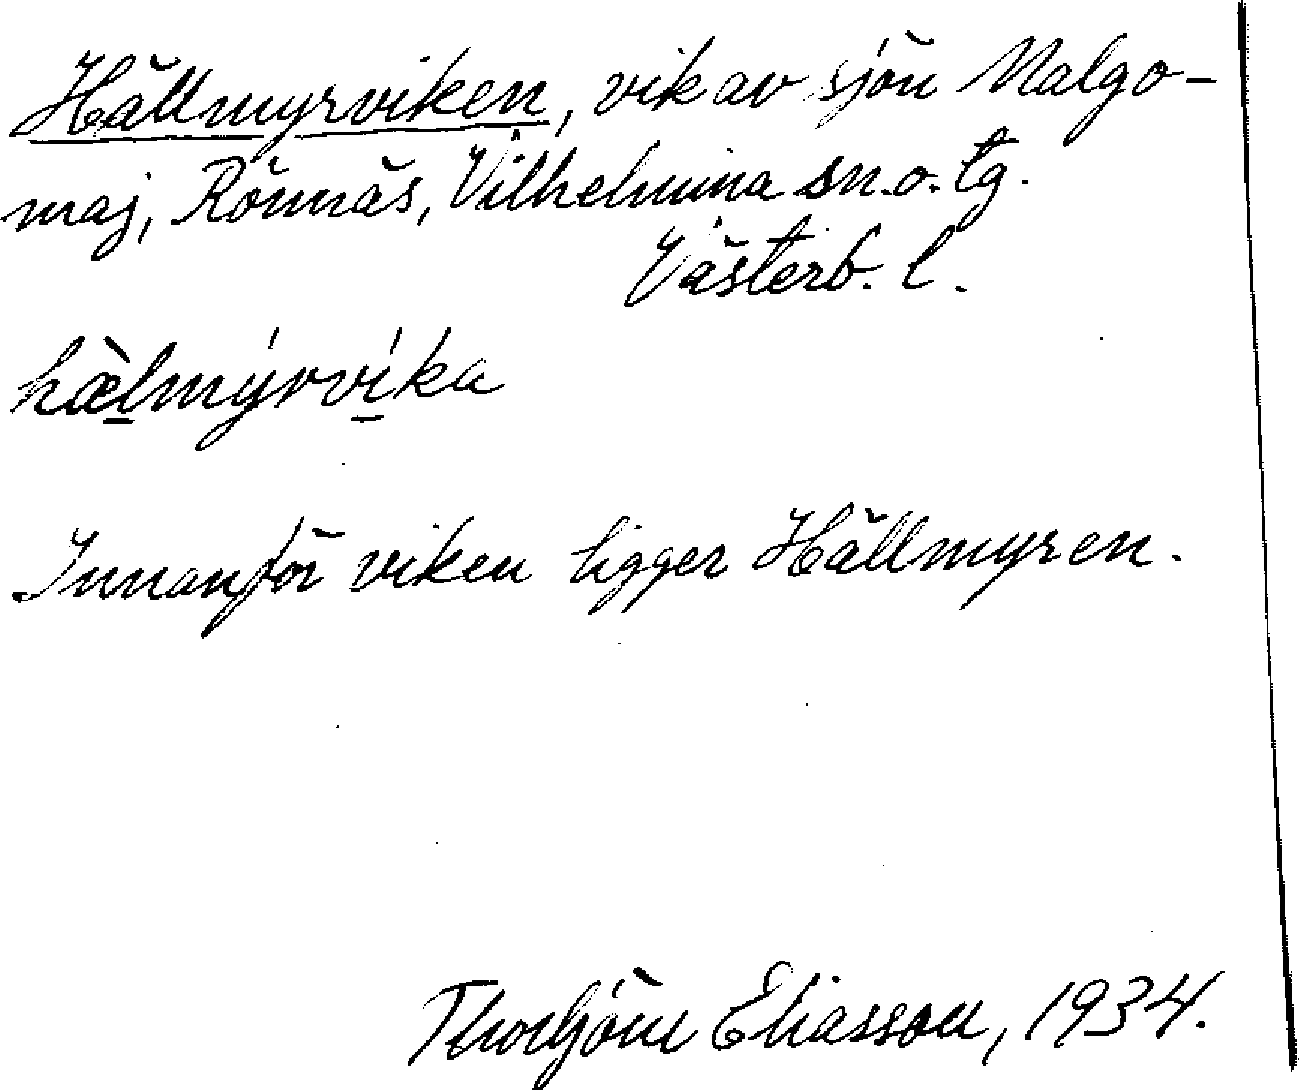 Hällmyrviken, vik av sjön Malgo-
maj, Rönnäs, Vilhelmina sn. o. tg.
Västerb. l.
hæ̀lmýrvíka
Innanför viken ligger Hällmyren.
Thorbjörn Eliasson, 1934.